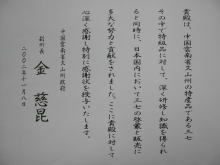 貴殿は、中国雲南省文山州の特産品である三七
その中で特級品に対して、深く研修し知識を得られ
ると同時に、日本国内において三七の発業と販売に
多大な努力と貢献をされました。ここに貴殿に対して
心深く感謝し特別に感謝状を授与いたします。
中国雲南省文山州政府
副州長 金 慈昆
二〇〇二年十一月八日